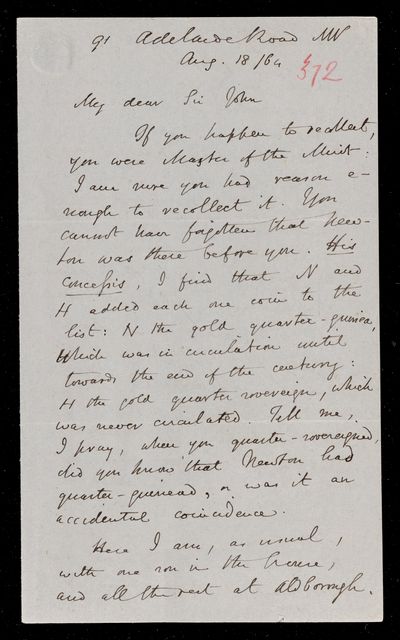 91 Adelaide Road NW
Aug. 18/64
372
My dear Sir John
If you happen to recollect,
you were Master of the Mint:
I am sure you had reason e-
nough to recollect it. You
cannot have forgotten that New-
ton was there before you. His
concessis, I find that N and
H added each one coin to the
list: N the gold quarter-guinea,
which was in circulation until
towards the end of the century:
H the gold quarter sovereign, which
was never circulated. Tell me,
I pray, when you quarter-sovereigned,
did you know that Newton had
quarter-guinead, or was it an
accidental coincidence.
Here I am, as usual,
with one son in the house,
and all the rest at Aldborough.